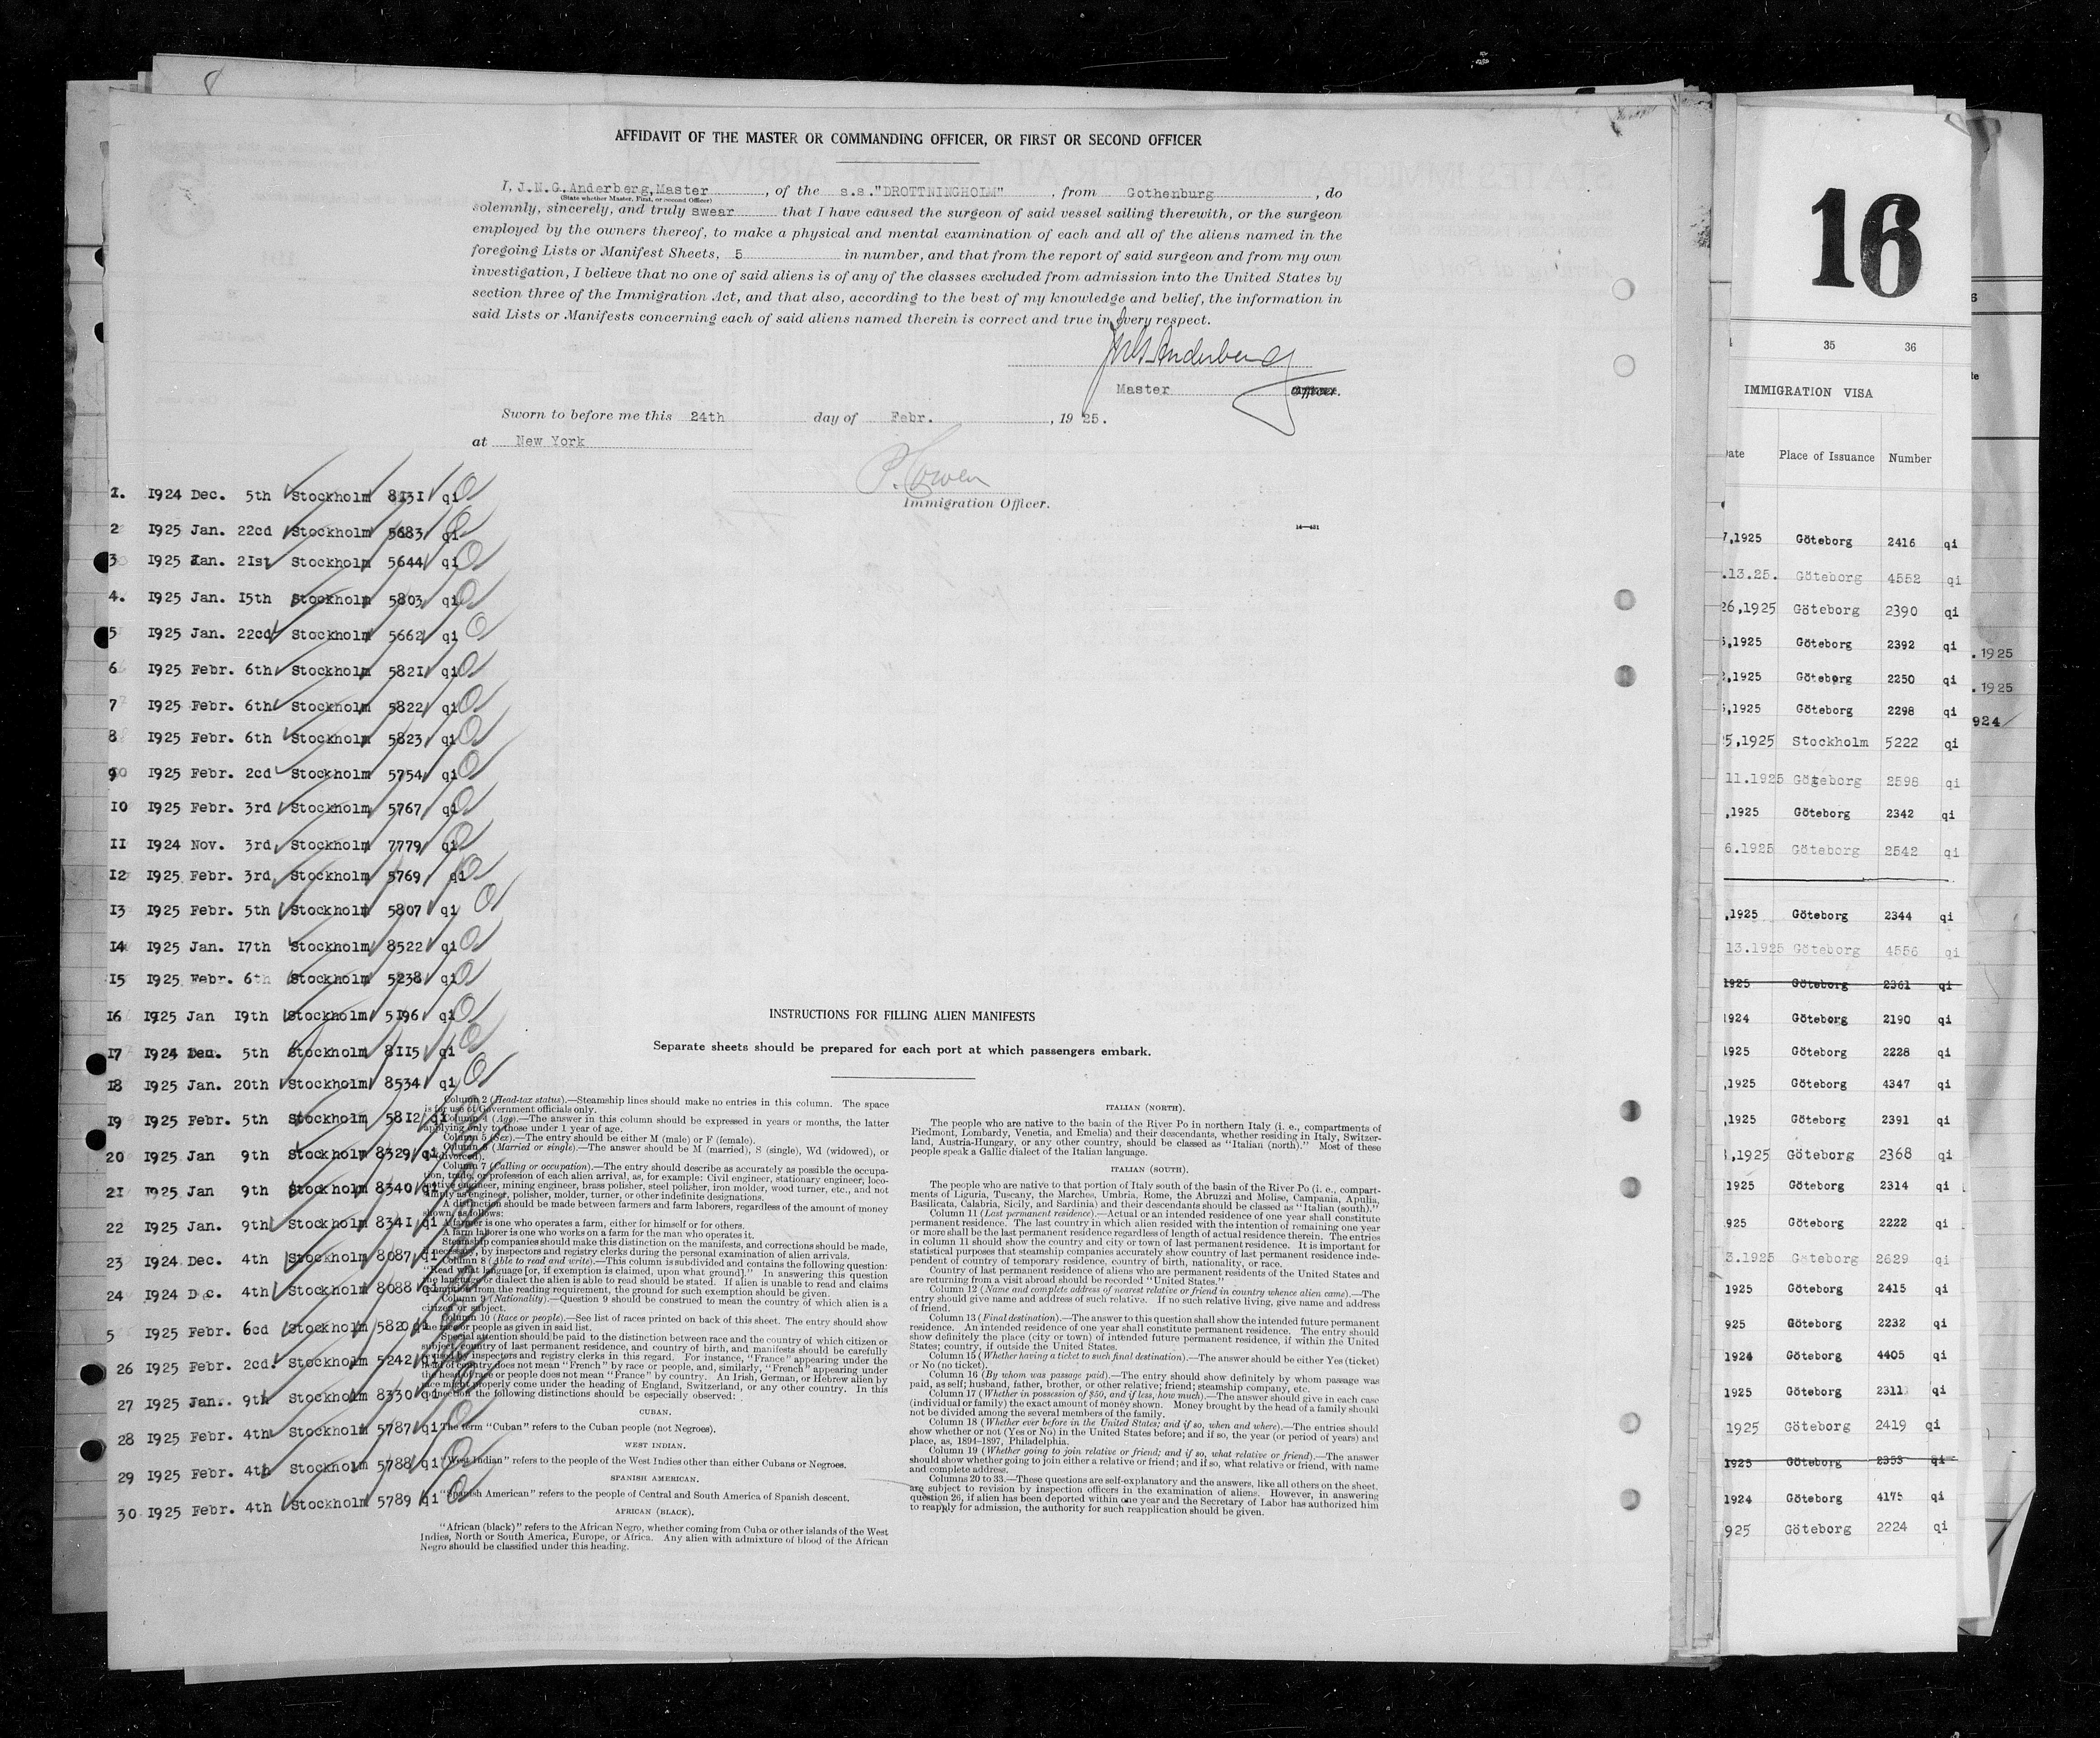 8
AFFIDAVIT OF THE MASTER OR COMMANDING OFFICER, OR FIRST OR SECOND OFFICER
I, J.N.G.Anderberg,Master, of the s.s."DROTTNINGHOLM", from Gothenburg, do
(State whether Master, First, or Second Officer)
solemnly, sincerely, and truly swear that I have caused the surgeon of said vessel sailing therewith, or the surgeon
employed by the owners thereof, to make a physical and mental examination of each and all of the aliens named in the
foregoing Lists or Manifest Sheets, 5 in number, and that from the report of said surgeon and from my own
investigation, I believe that no one of said aliens is of any of the classes excluded from admission into the United States by
section three of the Immigration Act, and that also, according to the best of my knowledge and belief, the information in
said Lists or Manifests concerning each of said aliens named therein is correct and true in every respect.
JNG Anderberg
Master Officer.
Sworn to before me this 24th day of Febr., 1925.
at New York
P. Cowen
Immigration Officer.
14—481
1. 1924 Dec. 5th Stockholm 8131 qi
2 1925 Jan. 22cd Stockholm 5683 qi
3 1925 Jan. 21st Stockholm 5644 qi
4. 1925 Jan. 15th Stockholm 5803 qi
5 1925 Jan. 22cd Stockholm 5662 qi
6 1925 Febr. 6th Stockholm 5821 qi
7 1925 Febr. 6th Stockholm 5822 qi
8 1925 Febr. 6th Stockholm 5823 qi
9 1925 Febr. 2cd Stockholm 5754 qi
10 1925 Febr. 3rd Stockholm 5767 qi
11 1924 Nov. 3rd Stockholm 7779 qi
12 1925 Febr. 3rd Stockholm 5769 qi
13 1925 Febr. 5th Stockholm 5807 qi
14 1925 Jan. 17th Stockholm 8522 qi
15 1925 Febr. 6th Stockholm 5238 qi
16 1925 Jan 19th Stockholm 5196 qi
17 1924 Dec. 5th Stockholm 8115 qi
18 1925 Jan. 20th Stockholm 8534 qi
19 1925 Febr. 5th Stockholm 5812 qi
20 1925 Jan 9th Stockholm 8329 qi
21 1925 Jan 9th Stockholm 8340 qi
22 1925 Jan. 9th Stockholm 8341 qi
23 1924 Dec. 4th Stockholm 8087 qi
24 1924 D c. 4th Stockholm 8088 qi
5 1925 Febr. 6cd Stockholm 5820 qi
26 1925 Febr. 2cd. Stockholm 5242 qi
27 1925 Jan. 9th Stockholm 8330 qi
28 1925 Febr. 4th Stockholm 5787 qi
29 1925 Febr. 4th Stockholm 5788 qi
30 1925 Febr. 4th Stockholm 5789 qi
INSTRUCTIONS FOR FILLING ALIEN MANIFESTS
Separate sheets should be prepared for each port at which passengers embark.
Column 2 (Head-tax status).—Steamship lines should make no entries in this column. The space
is for use of Government officials only.
Column 4 (Age).—The answer in this column should be expressed in years or months, the latter
applying only to those under 1 year of age.
Column 5 (Sex).—The entry should be either M (male) or F (female).
Column 6 (Married or single).—The answer should be M (married), S (single), Wd (widowed), or
D (divorced).
Column 7 (Calling or occupation).—The entry should describe as accurately as possible the occupa-
tion, trade, or profession of each alien arrival, as, for example: Civil engineer, stationary engineer, loco-
motive engineer, mining engineer, brass polisher, steel polisher, iron molder, wood turner, etc., and not
simply as engineer, polisher, molder, turner, or other indefinite designations.
A distinction should be made between farmers and farm laborers, regardless of the amount of money
shown, as follows:
A farmer is one who operates a farm, either for himself or for others.
A farm laborer is one who works on a farm for the man who operates it.
Steamship companies should make this distinction on the manifests, and corrections should be made,
if necessary, by inspectors and registry clerks during the personal examination of alien arrivals.
Column 8 (Able to read and write).—This column is subdivided and contains the following question:
"Read what language [or, if exemption is claimed, upon what ground]." In answering this question
the language or dialect the alien is able to read should be stated. If alien is unable to read and claims
exemption from the reading requirement, the ground for such exemption should be given.
Column 9 (Nationality).—Question 9 should be construed to mean the country of which alien is a
citizen or subject.
Column 10 (Race or people).—See list of races printed on back of this sheet. The entry should show
the race or people as given in said list.
Special attention should be paid to the distinction between race and the country of which citizen or
subject, country of last permanent residence, and country of birth, and manifests should be carefully
revised by inspectors and registry clerks in this regard. For instance, "France" appearing under the
head of country does not mean "French" by race or people, and, similarly, "French" appearing under
the head of race or people does not mean "France" by country. An Irish, German, or Hebrew alien by
race might properly come under the heading of England, Switzerland, or any other country. In this
connection the following distinctions should be especially observed:
CUBAN.
The term "Cuban" refers to the Cuban people (not Negroes).
WEST INDIAN.
"West Indian" refers to the people of the West Indies other than either Cubans or Negroes.
SPANISH AMERICAN.
"Spanish American" refers to the people of Central and South America of Spanish descent.
AFRICAN (BLACK).
"African (black)" refers to the African Negro, whether coming from Cuba or other islands of the West
Indies, North or South America, Europe, or Africa. Any alien with admixture of blood of the African
Negro should be classified under this heading.
ITALIAN (NORTH).
The people who are native to the basin of the River Po in northern Italy (i. e., compartments of
Piedmont, Lombardy, Venetia, and Emelia) and their descendants, whether residing in Italy, Switzer-
land, Austria-Hungary, or any other country, should be classed as "Italian (north)." Most of these
people speak a Gallic dialect of the Italian language.
ITALIAN (SOUTH).
The people who are native to that portion of Italy south of the basin of the River Po (i. e., compart-
ments of Liguria, Tuscany, the Marches, Umbria, Rome, the Abruzzi and Molise, Campania, Apulia,
Basilicata, Calabria, Sicily, and Sardinia) and their descendants should be classed as "Italian (south)."
Column 11 (Last permanent residence).—Actual or an intended residence of one year shall constitute
permanent residence. The last country in which alien resided with the intention of remaining one year
or more shall be the last permanent residence regardless of length of actual residence therein. The entries
in column 11 should show the country and city or town of last permanent residence. It is important for
statistical purposes that steamship companies accurately show country of last permanent residence inde-
pendent of country of temporary residence, country of birth, nationality, or race.
Country of last permanent residence of aliens who are permanent residents of the United States and
are returning from a visit abroad should be recorded "United States."
Column 12 (Name and complete address of nearest relative or friend in country whence alien came).—The
entry should give name and address of such relative. If no such relative living, give name and address
of friend.
Column 13 (Final destination).—The answer to this question shall show the intended future permanent
residence. An intended residence of one year shall constitute permanent residence. The entry should
show definitely the place (city or town) of intended future permanent residence, if within the United
States; country, if outside the United States.
Column 15 (Whether having a ticket to such final destination).—The answer should be either Yes (ticket)
or No (no ticket).
Column 16 (By whom was passage paid).—The entry should show definitely by whom passage was
paid, as self; husband, father, brother, or other relative; friend; steamship company, etc.
Column 17 (Whether in possession of $50, and if less, how much).—The answer should give in each case
(individual or family) the exact amount of money shown. Money brought by the head of a family should
not be divided among the several members of the family.
Column 18 (Whether ever before in the United States; and if so, when and where).—The entries should
show whether or not (Yes or No) in the United States before; and if so, the year (or period of years) and
place, as, 1894–1897, Philadelphia.
Column 19 (Whether going to join relative or friend; and if so, what relative or friend).—The answer
should show whether going to join either a relative or friend; and if so, what relative or friend, with name
and complete address.
Columns 20 to 33.—These questions are self-explanatory and the answers, like all others on the sheet,
are subject to revision by inspection officers in the examination of aliens. However, in answering
question 26, if alien has been deported within one year and the Secretary of Labor has authorized him
to reapply for admission, the authority for such reapplication should be given.
16
35 36
IMMIGRATION VISA
Date Place of Issuance Number
7,1925 Göteborg 2416 qi
.13.25. Göteborg 4552 qi
26,1925 Göteborg 2390 qi
5,1925 Göteborg 2392 qi
2,1925 Göteborg 2250 qi
5,1925 Göteborg 2298 qi
25,1925 Stockholm 5222 qi
11.1925 Göteborg 2598 qi
,1925 Göteborg 2342 qi
6.1925 Göteborg 2542 qi
,1925 Göteborg 2344 qi
13.1925 Göteborg 4556 qi
1925 Göteborg 2361 qi
1924 Göteborg 2190 qi
1925 Göteborg 2228 qi
,1925 Göteborg 4347 qi
,1925 Göteborg 2391 qi
,1925 Göteborg 2368 qi
1925 Göteborg 2314 qi
925 Göteborg 2222 qi
3.1925 Göteborg 2629 qi
1925 Göteborg 2415 qi
925 Göteborg 2232 qi
1924 Göteborg 4405 qi
1925 Göteborg 2311 qi
1925 Göteborg 2419 qi
1925 Göteborg 2353 qi
1924 Göteborg 4175 qi
925 Göteborg 2224 qi
. 1925
. 1925
924